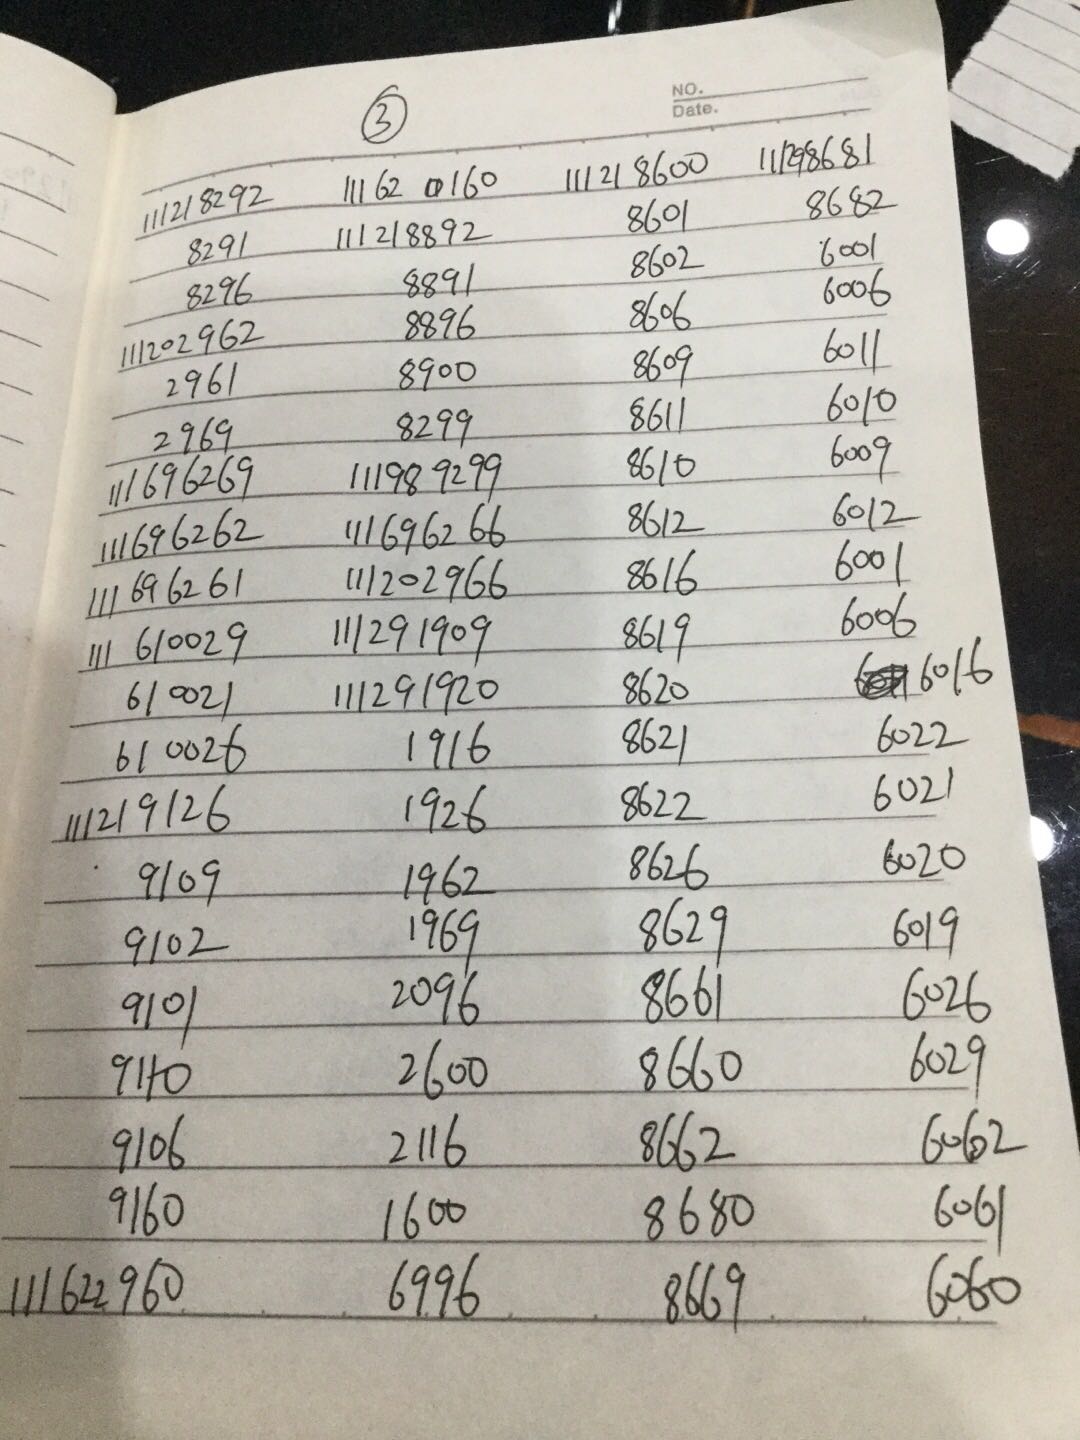 ③
NO.
Date.
111218292 11162 0160 111218600 111298681
8291 111218892 8601 8682
8296 8891 8602 6001
111202962 8896 8606 6006
2961 8900 8609 6011
2969 8299 8611 6010
111696269 111989299 8610 6009
111696262 111696266 8612 6012
111696261 111202966 8616 6001
111610029 111291909 8619 6006
610021 111291920 8620 6016
610026 1916 8621 6022
111219126 1926 8622 6021
9109 1962 8626 6020
9102 1969 8629 6019
9101 2096 8661 6026
9110 2600 8660 6029
9106 2116 8662 6062
9160 1600 8680 6061
111622960 6996 8669 6060